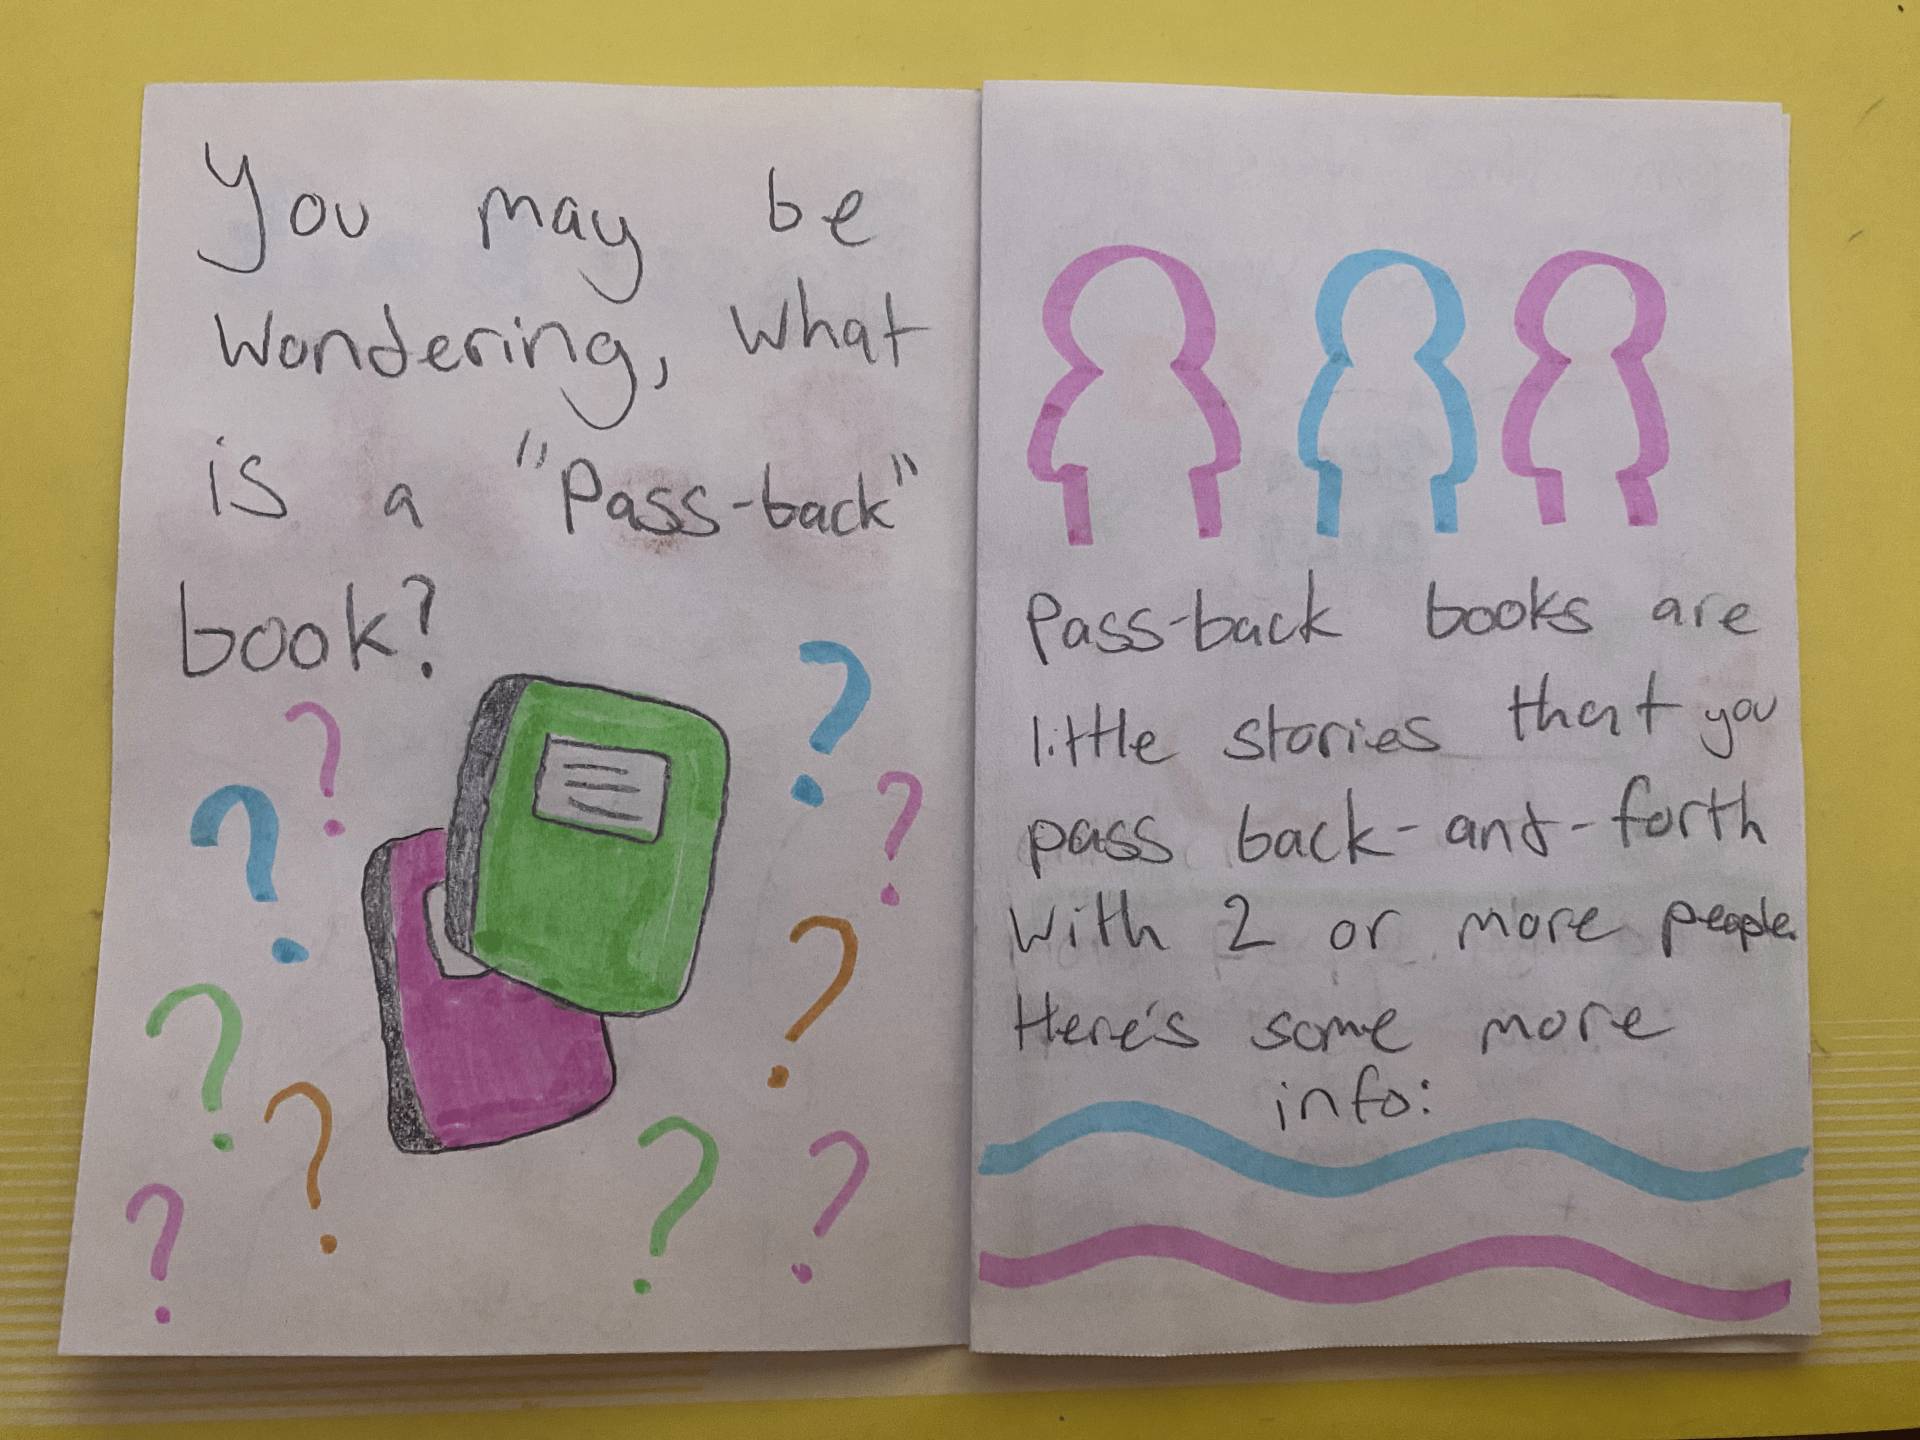 You may be
wondering, what
is a "Pass-back"
book?
Pass-back books are
little stories that you
pass back-and-forth
with 2 or more people.
Here's some more
info: